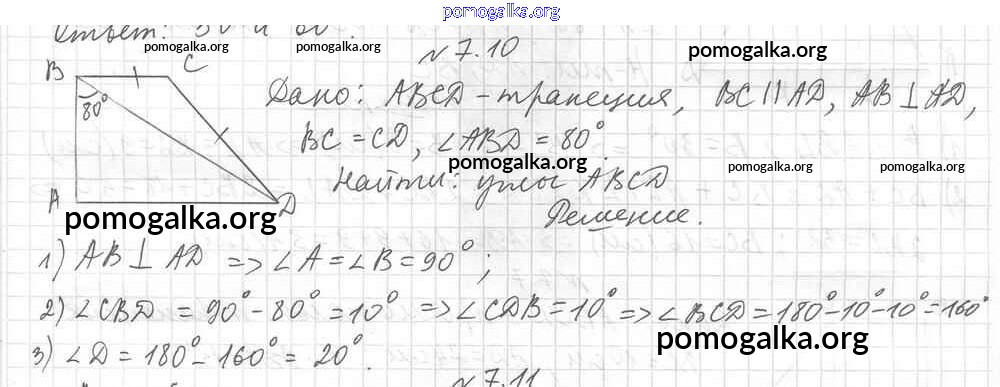 pomogalka.org
Ответ:
pomogalka.org
pomogalka.org
№ 7.10
pomogalka.org
B
C
80°
A
D
Дано: ABCD - трапеция, BC || AD, AB ⊥ AD,
BC = CD, ∠ABD = 80°.
pomogalka.org
pomogalka.org
pomogalka.org
Найти: углы ABCD
pomogalka.org
Решение.
1) AB ⊥ AD => ∠A = ∠B = 90°;
2) ∠CBD = 90° - 80° = 10° => ∠CDB = 10° => ∠BCD = 180° - 10° - 10° = 160°
pomogalka.org
3) ∠D = 180° - 160° = 20°.
№ 7.11